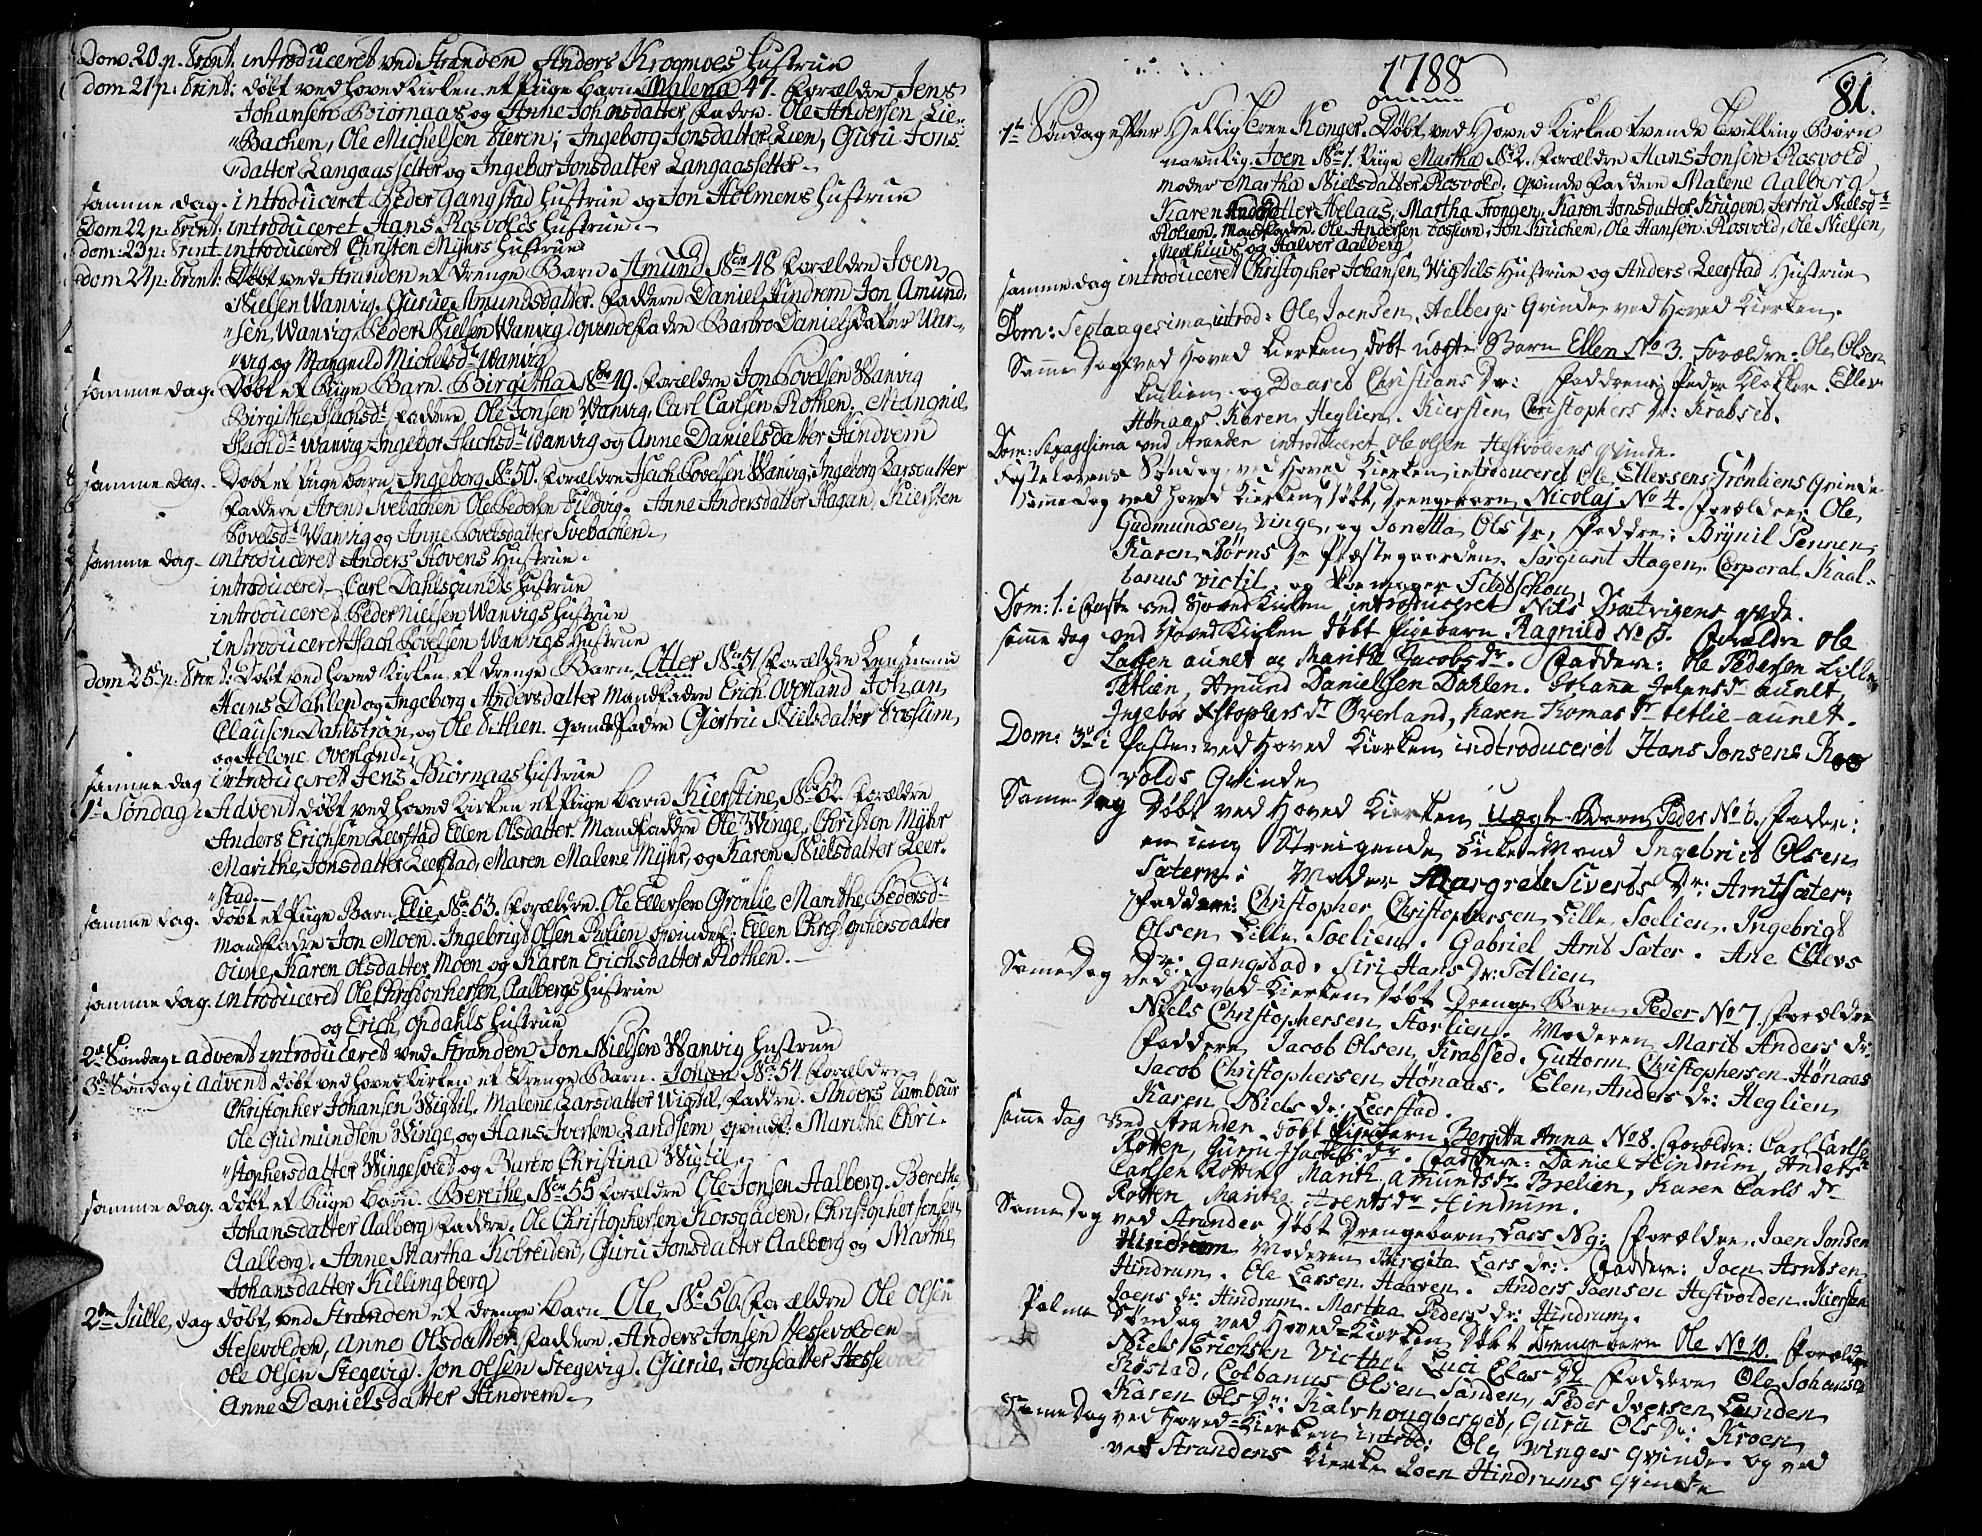 Dom. 20 p. Trint. introduceret ved Stranden Anders Krogmoes Hustrue
dom 21 p: Trint: døbt ved hoved Kirken et Pige Barn Malena 47. Forældre Jens
Johansen Biørnaas og Anne Johansdatter Faddre. Ole Andersen Lie-
"Bachen, Ole Michelsen Vieren; Ingeborg Jonsdatter Lien, Guru Jons
"datter Langaassetter og Ingebor Jonsdatter Langaassetter
samme dag. introduceret Peder Gangstad Hustrue og Jon Holmens Hustrue
Dom 22 p: Trint: introduceret Hans Rosvolds Hustrue.
dom: 23 p: Trint. introduceret Christen Myhrs Hustrue
dom 24 p: Trint: Døbt ved Stranden et drenge Barn. Amund No 48 Forældre Joen
Nielsen Wanvig. Gurue Amundsdatter. Faddere Daniel Hindrem Jon Amund
"sen, Wanvig, Peder Nielsen Wanvig, qvinde Fadre Barbro Danielsdatter Wan-
"vig og Mangnild Michelsdr Wanvig
samme dag. Døbt et Pige Barn. Birgitha No 49. Forældre Jon Povelsen Wanvig
Birgithe Isachsdr Faddere Ole Jonsen Wanvig, Carl Carlsen Rothen. Mangnil
Isachdr Wanvig Ingebor Isachsdr Wanvig og Anne Danielsdatter Hindrem
samme dag. Døbt et Pige Barn Ingeborg No 50. Forældre Isach Povelsen Wanvig, Ingeborg Larsdatter
Faddere Arent Svebachen Ole Pedersen Fildvig. Anne Andersdatter Hagan, Kiersten
Povelsdr Wanvig og Anne Povelsdatter Svebachen
samme dag introduceret Anders Hovens Hustrue.
introduceret Carl Dahlsgunds Hustrue
introduceret Peder Nielsen Wanvigs Hustrue
introduceret Isach Povelsen Wanvigs Hustrue
dom 25 p: Trint: Døbt ved hoved Kirken et drenge Barn Otter No 51 Forældre
Hans Dahlen og Ingeborg Andersdatter Mandfadre Erich Overland Johan
Clausen Dahlstrøn, og Ole Tethien. qvindefadre Giertru Nielsdatter Fossum
og Helene Overland
samme dag introduceret Jens Biørnaas Hustrue
1te Søndag i Advent døbt ved hoved Kirken et Pige barn Kierstine No 52. Forældre
Anders Erichsen Leerstad Ellen Olsdatter. Mandfaddre Ole Winge, Christen Myhr
Marithe Jonsdatter Leerstad, Maren Malene Myhr, og Karen Nielsdatter Leer-
"stad
samme dag. døbt et Pige Barn Elie No 53. Forældre. Ole Ellersen Grønlie Marithe Pedersdr
Mandfadre Jon Moen. Ingebrigt Olsen Qvindef. Ellen Christophersdatter
Oune, Karen Olsdatter Moen og Karen Erichsdatter Rothen.
samme dag. introduceret Ole Christophersen Aalbergs Hustrue
og Erich Opdahls Hustrue
2den Søndag i advent introduceret ved Stranden Jon Nielsen Wanvig Hustrue
3de Søndag i advent døbt ved hoved Kirken et Drenge Barn. Johan No 54. Forældre
Christopher Johansen Wigtil, Malene Larsdatter Wigtil, Faddre. Anders Tambour
Ole Gudmundsen Winge og Hans Iversen Landsem qvindf: Marithe Chri-
"stophersdatter Wingesvet og Barbro Christina Wigtil,
samme dag. døbt et Pige barn. Berethe No 55 Forældre Ole Jonsen Aalberg. Berethe
Johansdatter Aalberg Faddre. Ole Christophersen Korsgaden, Christopher Jensen
Aalberg. Anne Martha Kobreiden, Guru Jonsdatter Aalberg og Marthe
Johansdatter Killingberg
2den Julle, dag døbt, ved Stranden et drenge barn Ole, No 56. Forældre Ole Olsen
Hesevolden, Anne Olsdatter. Faddre. Anders Jonsen Hessevolden
Ole Olsen Stegevig. Jon Olsen Stegevig. Gurue, Jonsdatter Hessevold
Anne Danielsdatter Hindrem
1788
81.
1te Søndag efter Hellig Tree Konger. Døbt ved Hoved Kirken tvende Tvilling Børn
navnlig. Joen No 1. Pige Martha No 2. Forældre Hans Jonsen Rosvold
moder Martha Nielsdatter Rosvold: qvinde Faddere Malene Aalberg
Karen datter Avelaas, Martha Trongen, Karen Jonsdatter Krugen, Sertru Nielsdr
Rolsen. Mandfadre. Ole Andersen Fossum, Jon Kruchen, Ole Hansen Rosvold, Ole Nielsen,
og Halver Aalberg
samme dag introduceret Christopher Johansen Wigtils Hustrue og Anders Leerstad Hustrue
Dom: Septuagesima introd: Ole Joensen, Aalbergs Qvinde ved Hoved Kierken.
Samme Dag ved Hoved Kierken døbt uægte Barn Ellen No 3. Forældre: Ole Olsen
og Baaret Christians Dr: Faddrene: Peder Klokker. Ellen
Hønaas. Karen Heglien. Kiersten Christophers Dr: Krabsed.
Dom: Sexagesima ved Stranden introduceret Ole Olsen Hestvoldens qvinde.
Fastelavens Søndag, ved Hoved Kierken introduceret Ole Ellersens Grønliens Qvinde
Samme dag ved Hoved Kierken, døbt, Drengebarn Nicolaj No 4. Forældre: Ole
Gudmundsen Vinge, og Jonetta Ols Dr, Faddre: Brynil Pennen,
Karen Børns Dr Præstegaarden. Sargiant Hagen. Corporal Kaal-
banus Victil, og Schou,
Dom: 1. i Faste ved Hoved Kirken introduceret Nils Drætvigens qvde.
samme dag ved Hoved Kirken døbt Pigebarn Ragnild No 5. Forældre Ole
Larsen aunet og Marith Jacobsdr. Faddere: Ole Pedersen Lille
Tetlien, Amund Danielsen Dahlen. Johana Johansdr aunet,
Ingebor Xstophersdr Overland, Karen Thomasdr Tetlie-aunet.
Dom: 3die i Faste: ved Hoved Kierken indtroduceret Hans Jonsens Roo
volds Qvinde
Samme Dag Døbt ved Hoved Kierken Uægte Barn Peder No 6. Fader:
en ung Streigende Enke Mand Ingebrict Olsen
Sætern: Moder Margrete Siverts Dr: Arntsæter:
Faddere: Christopher Christophersen Lille Soelien. Ingebrigt
Olsen Lille Soelien. Gabriel Arnt Sæter. Ane Ellevs
Dr: Gangstad. Siri Hans Dr: Tetlien
Samme Dag ved Hoved-Kierken Døbt Drenge Barn Peder No 7. Forældre
Niels Christophersen Storlien. Moderen Marit Anders Dr:
Faddere Jacob Olsen Krabsed. Guttorm Christophersen Hønaas
Jacob Christophersen Hønaas. Elen Anders Dr: Heglien
Karen Niels Dr: Leerstad.
samme dag ved Stranden døbt Pigebarn Bergitta Anna No 8. Forældre: Carl Carlsen
Rotten, Guru Jsachsdr. Faddere: Daniel Hindrum, Anders
Carlsen Rotten, Marit Amundsdr Brelien, Karen Carls dr
Rotten, Maritha Arentsdr Hindrum.
Samme Dag ved Stranden Døbt Drengebarn Lars No 9: Forældre. Joen Jonsen
Hindrum Moderen Birgita Lars Dr: Faddere: Joen Arntsen
Hindrum. Ole Larsen Haaren. Anders Joensen Hestvolden. Kiersten
Joens Dr: Hindrum. Martha Peders Dr: Hindrum.
Palme Søndag ved Hoved-Kierken Døbt Drengebarn Ole No 10. Forældre
Niels Erichsen Victhel Luci Elas Dr Faddere Ole Johansen
Røstad, Colbanus Olsen Sanden, Peder Iversen Lunden
Karen Ols Dr: Kalvhougberget, Guru Ols Dr: Kroen
Samme Dag ved Hoved-Kierken introd: Ole Vinges Qvinde og ved
ved Strandens Kierke Joen Hindrums Qvinde